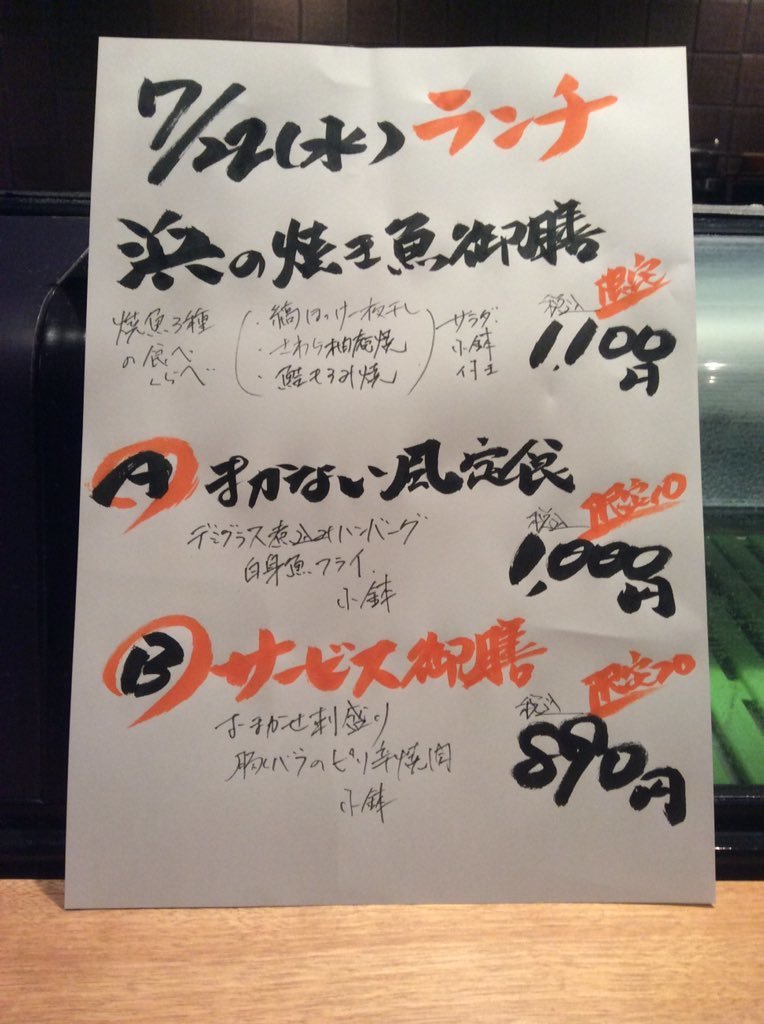 7/22(水) ランチ
浜の焼き魚御膳
限定
税込
1,100円
焼魚3種
の食べ
くらべ
・縞ほっけ一夜干し
・さわら柚庵焼
・鮭もろみ焼
サラダ
小鉢
付き
A まかない風定食
デミグラス煮込みハンバーグ
白身魚フライ
小鉢
限定10
税込
1,000円
B サービス御膳
おまかせ刺盛り
豚バラのピリ辛焼肉
小鉢
税込
890円